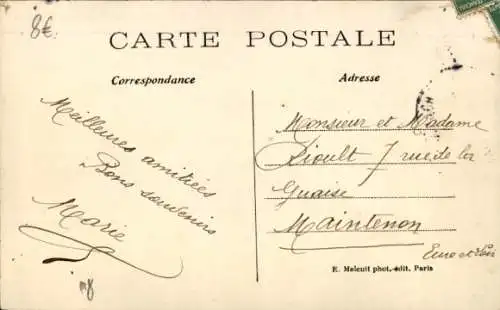 8€
CARTE POSTALE
Correspondance
Adresse
Meilleures amitiées
Bons souvenirs
Marie
Monsieur et Madame
Rioult 7 rue de la
Guaise
Maintenon
Eure et Loir
E. Malcuit phot. édit. Paris